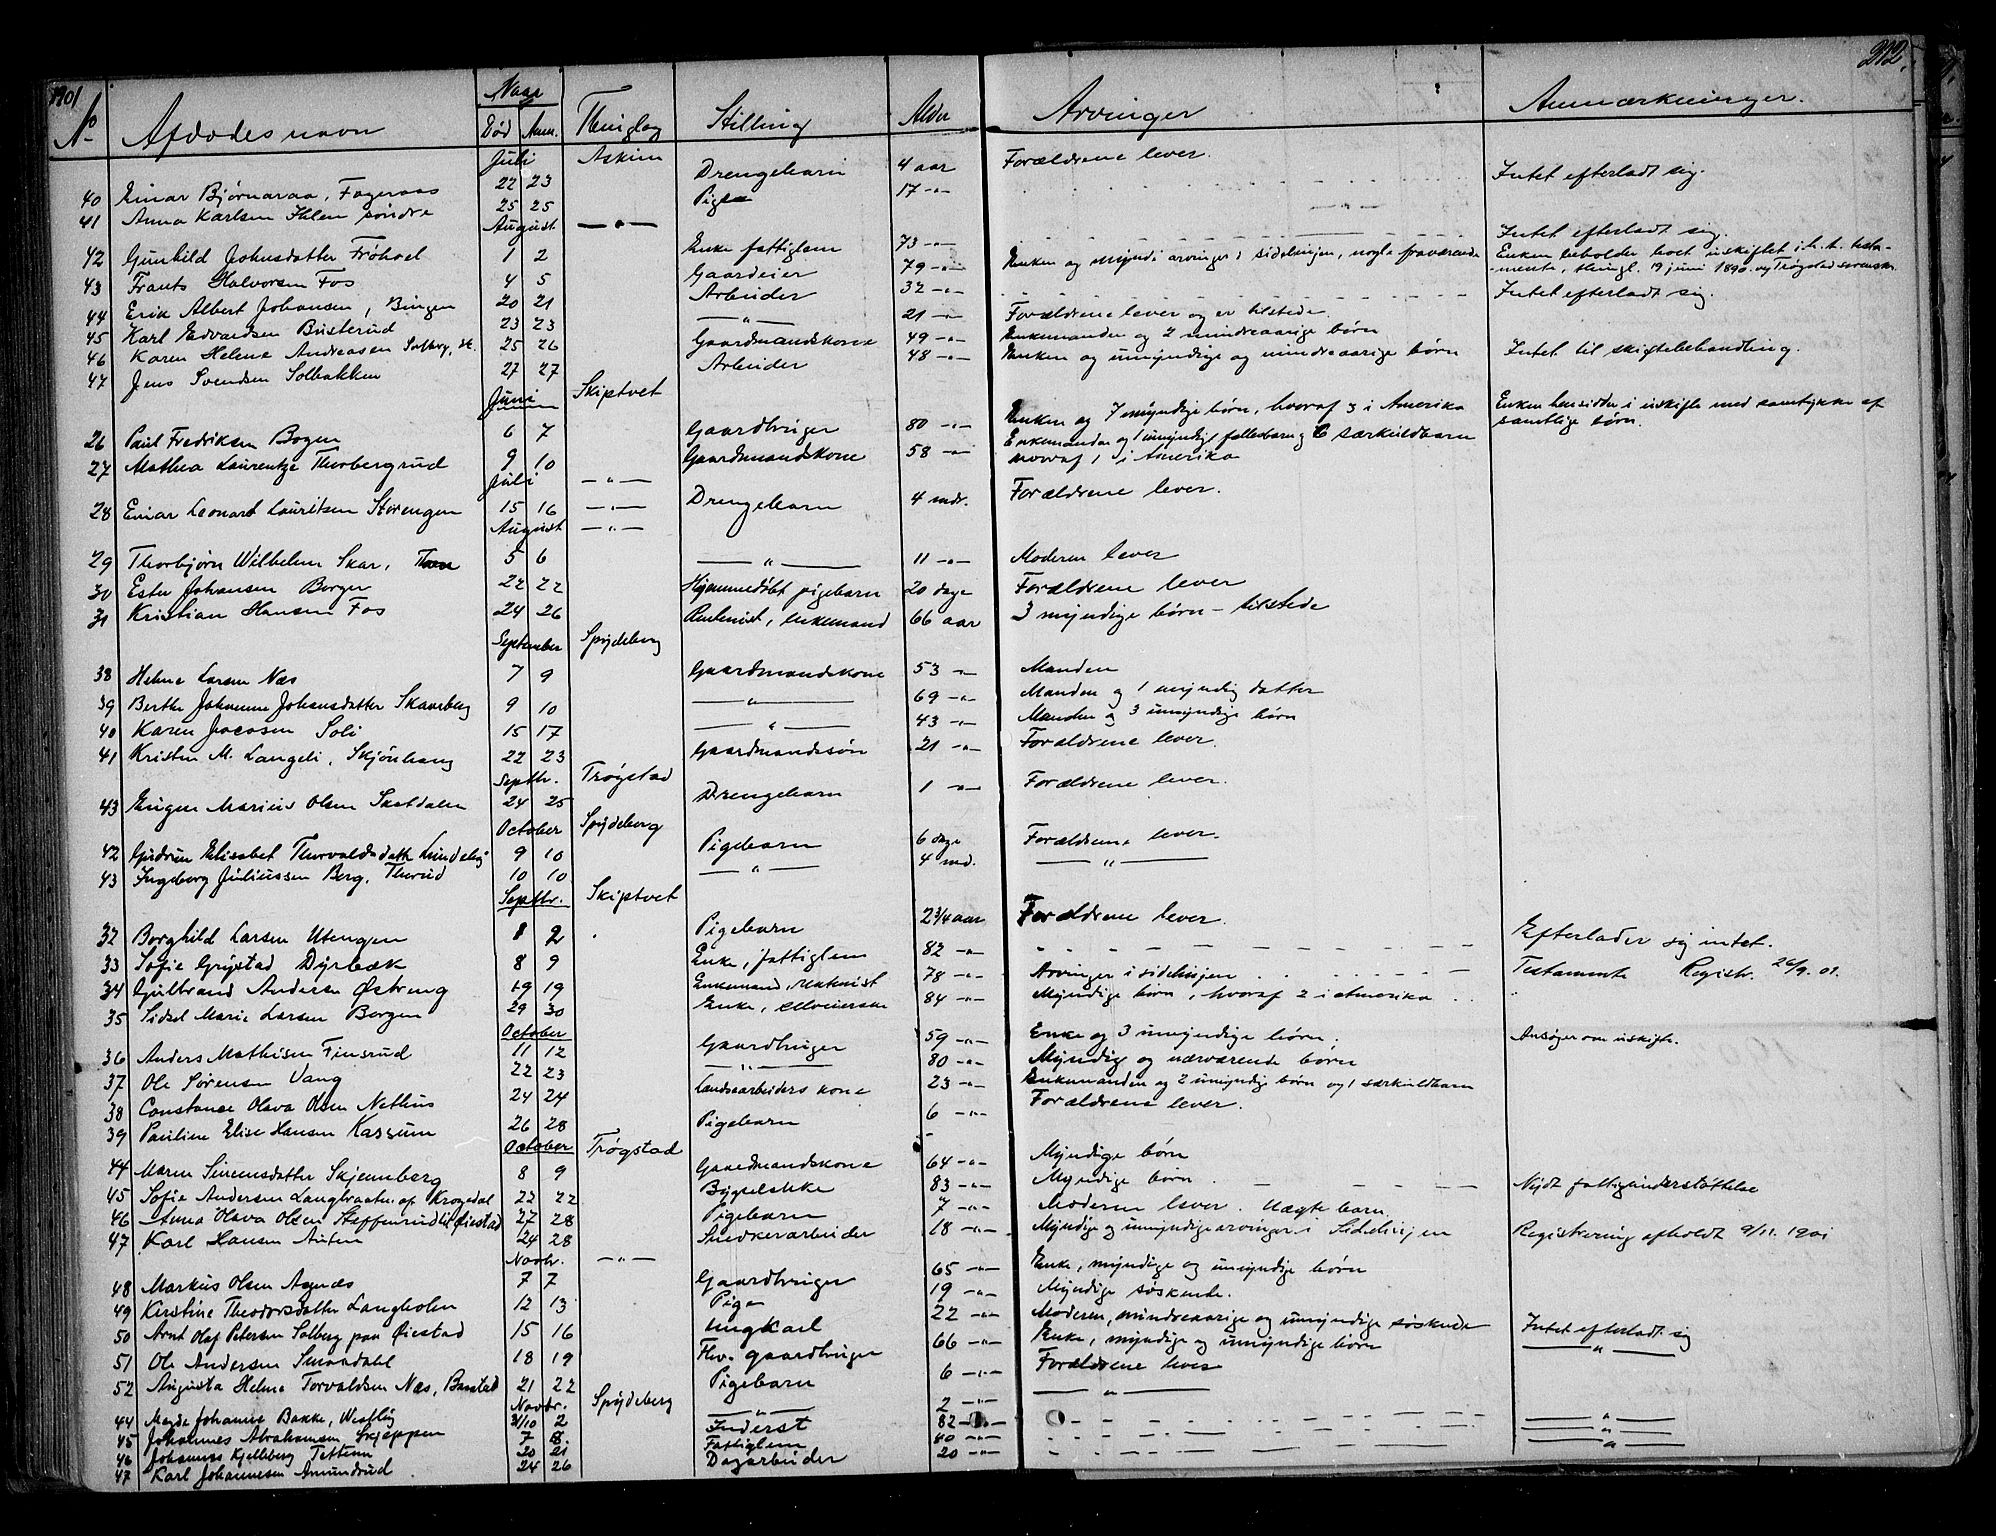 1901
212.
No Afdødes navn Naar Død Anm. Thinglag Stilling Alder Arvinger Anmærkninger.
Juli Askim
40 Einar Bjørnaraa, Fageraas 22 23 Drengebarn 4 aar Forældrene lever. Intet efterladt sig.
41 Anna Karlsen Ihlen søndre 25 25 Pige 17 -"-
August -"-
42 Gunhild Johnsdatter Frøhoel 1 2 Enke fattiglem 73 -"- Intet efterladt sig.
43 Frants Halvorsen Fos 4 5 Gaardeier 79 -"- Enken og myndi arvinger i sidelinjen, nogle fraværende Enken beholder boet i uskiftet i.h.t. testa-
mente, thingl. 19 juni 1890. og Trøgstad sorensk.
44 Erik Albert Johansen, Bingen 20 21 Arbeider 32 -"- Intet efterladt sig.
45 Karl Edvardsen Busterud 23 23 -"- 21 -"- Forældrene lever og er tilstede.
46 Karen Helene Andreasen Solberg, 25 26 Gaardmandskone 49 -"- Enkemanden og 2 mindreaarige børn
47 Jens Svendsen Solbakken 27 27 Arbeider 48 -"- Enken og umyndige og mindreaarige børn Intet til skiftebehandling.
Juni Skiptvet
26 Paul Fredriksen Bogen 6 7 Gaardbruger 80 -"- Enken og 7 myndige børn, hvoraf 3 i Amerika Enken hensidder i uskifte med samtykke af
samtlige børn.
27 Mathea Laurentze Thorbergrud 9 10 Gaardmandskone 58 -"- Enkemanden og 1 umyndigt fællesbarn og 6 særkuldbarn
hvoraf 1 i Amerika
Juli -"-
28 Einar Leonard Lauritsen Storengen 15 16 -"- Drengebarn 4 mdr. Forældrene lever.
August -"-
29 Thorbjørn Wilhelm Skar, 5 6 -"- 11 -"- Moderen lever
30 Ester Johansen Borgen 22 22 Hjemmedøbt pigebarn 20 dage Forældrene lever
31 Kristian Hansen Fos 24 26 Rentenist, enkemand 66 aar 3 myndige børn - tilstede
September Spydeberg
38 Helene Larsen Næs 7 9 Gaardmandskone 53 -"- Manden
39 Berthe Johanne Johansdatter Skaneberg 9 10 -"- 69 -"- Manden og 1 umyndig datter
40 Karen Jacosen Soli 15 17 -"- 43 -"- Manden og 3 umyndige børn
41 Kristen M. Langeli, Skjønhaug 22 23 Gaardmandssøn 21 -"- Forældrene lever.
Septbr. Trøgstad
43 Eugen Marius Olsen Skatdalen 24 25 Drengebarn 1 -"- Forældrene lever.
October Spydeberg
42 Gudrun Elisabet Thorvaldsdatter Lundeby 9 10 Pigebarn 6 dage Forældrene lever.
43 Ingeborg Juliussen Berg, Thorud 10 10 -"- 4 md. -"-
Septbr. Skiptvet
32 Borghild Larsen Utengen 1 2 Pigebarn 2 3/4 aar Forældrene lever.
33 Sofie Grystad Dyrbæk 8 9 Enke, fattiglem 82 -"- Efterlader sig intet.
34 Gulbrand Andersen Østreng 19 19 Enkemand, rentenist 78 -"- Arvinger i sidelinjen Testamente Registr. 26/9. 01.
35 Sidsel Marie Larsen Borgen 29 30 Enke, 84 -"- Myndige børn, hvoraf 2 i Amerika
October
36 Anders Mathisen Finsrud 11 12 Gaardbruger 59 -"- Enke og 3 umyndige børn. Ansøger om uskifte.
37 Ole Sørensen Vang 22 23 -"- 80 -"- Myndig og nærværende børn
38 Constance Olava Olsen Nethus 24 24 Landsarbeiders kone 23 -"- Enkemanden og 2 umyndige børn og 1 særkuldbarn
39 Pauline Elise Hansen Kassum 26 28 Pigebarn 6 -"- Forældrene lever.
October Trøgstad
44 Maren Simensdatter Skjennberg 8 9 Gaardmandskone 64 -"- Myndige børn
45 Sofie Andersen Langbraaten af Krogedal 22 22 Bygselekke 83 -"- Myndige børn. Nydt fattigunderstøttelse
46 Anna Olava Olsen Steffensrud til Øiestad 27 28 Pigebarn 7 -"- Moderen lever. Uægte barn.
47 Karl Hansen Auten 24 28 Snedkerarbeider 18 -"- Myndige og umyndige arvinger i Sidelinjen Registrering afholdt 9/11. 1901
Novbr. -"-
48 Markus Olsen Agnæs 7 7 Gaardbruger 65 -"- Enke, myndige og umyndige børn
49 Kirstine Theodorsdatter Langholen 12 13 Pige 19 -"- Myndige søskende.
50 Arnt Olaf Petersen Solberg paa Øiestad 15 16 ungkarl 22 -"- Moderen, mindreaarige og umyndige søskende Intet efterladt sig
51 Ole Andersen Smaadahl 18 19 Fhv. gaardbruger 66 -"- Enke, myndige og umyndige børn -"-
52 Augusta Helene Torvaldsen Næs, Baastad 21 22 Pigebarn 6 -"- Forældrene lever
Novbr. Spydeberg
44 Magda Johanne Bakke, Westby 31/10 2 -"- 2 -"- -"-
45 Johannes Abrahamsen Skjeppen 7 8. Inderst 82 -"- -"-
46 Johannes Kjelleberg Tetterun 20 21 Fattiglem 40 -"- -"-
47 Karl Johannesen Amundrud 24 26 Dagarbeider 20 -"- -"-